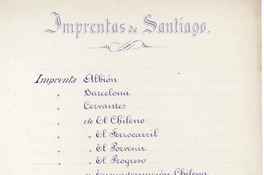 Imprentas de Santiago.
Imprenta Albión
" Barcelona
" Cervantes
" de El Chileno
" " El Ferrocarril
" " El Porvenir
" " El Progreso
" y Encuadernación Chilena